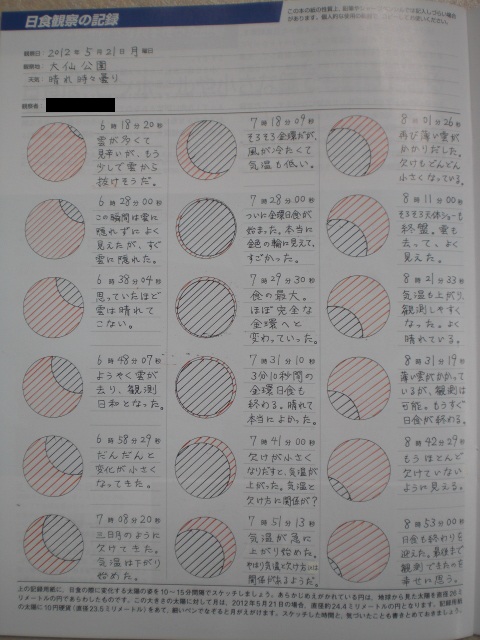 日食観察の記録
観察日 2012年5月21日月曜日
観察地 大仙公園
天気 晴れ時々曇り
観察者
6時18分20秒
雲が多くて
見辛いが、もう
少しで雲から
抜けそうだ。
6時28分00秒
この瞬間は雲に
隠れずによく
見えたが、すぐ
雲に隠れた。
6時38分04秒
思っていたほど
雲は晴れて
こない。
6時48分07秒
ようやく雲が
去り、観測
日和となった。
6時58分29秒
だんだんと
変化が小さく
なってきた。
7時08分20秒
三日月のように
欠けてきた。
気温は下がり
始めた。
7時18分09秒
そろそろ金環だが、
風が冷たくて
気温も低い。
7時28分00秒
ついに金環日食が
始まった。本当に
金色の輪に見えて、
すごかった。
7時29分30秒
食の最大。
ほぼ完全な
金環へと
変わっていった。
7時31分10秒
3分10秒間の
金環日食も
終わる。晴れて
本当によかった。
7時41分00秒
欠けが小さく
なりだすと、気温が
上がった。気温と
欠け方に関係が?
7時51分13秒
気温が急に
上がり始めた。
やはり気温と欠け方には
関係があるようだ。
8時01分26秒
再び薄い雲が
かかりだした。
欠けもどんどん
小さくなっている。
8時11分00秒
そろそろ天体ショーも
終盤。雲も
去って、よく
見えた。
8時21分33秒
気温も上がり、
観測しやすく
なった。よく
晴れている。
8時31分19秒
薄い雲がかかって
いるが、観測は
可能。もうすぐ
日食が終わる。
8時42分29秒
もうほとんど
欠けていない
ように見える。
8時53分00秒
日食も終わりを
迎えた。最後まで
観測できたのを
幸せに思う。
上の記録用紙に、日食の際に変化する太陽の姿を10〜15分間隔でスケッチしましょう。あらかじめえがかれている円は、地球から見た太陽を直径25ミ
リメートルの円であらわしたものです。この大きさの太陽に対して月は、2012年5月21日の場合、直径約24.4ミリメートルの円となります。記録用紙
の太陽に10円硬貨(直径23.5ミリメートル)をあて、細いペンでなぞると月がえがけます。スケッチした時間と、気づいたことも書きとめておきましょう。